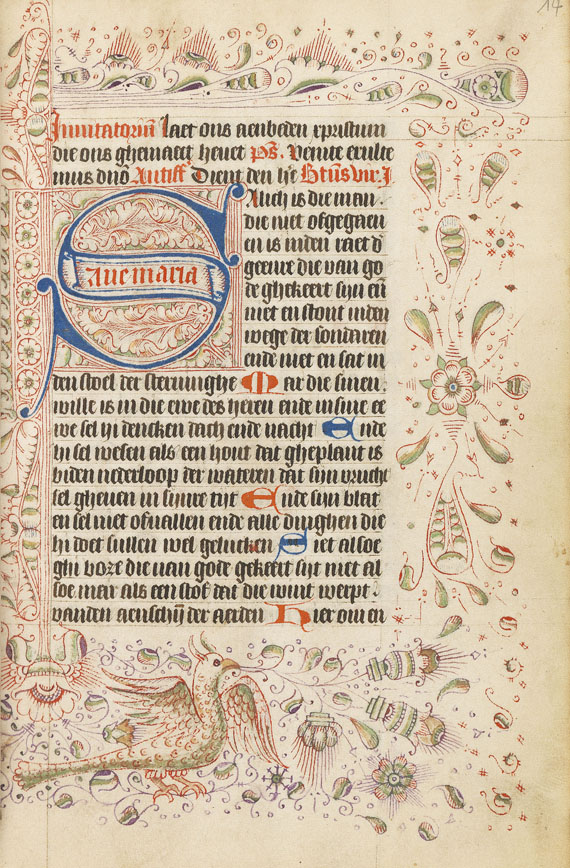 14
Inuitatoriū laet ons aenbeden xpristum
die ons ghemaect heuet ps. Venite exulte
mus dn̄o Antiff Dient den h'e btūs vir. p
Alich is die man.
die niet ofgegaen
en is inden raet d'
geenre die van go
de ghekeert sijn eñ
niet en stont inden
wege der sondaren
ende niet en sat in
aue maria
den stoel der steruinghe Mar die sinen
wille is in die ewe des heren ende in sijne ee
we sel hi dencken dach ende nacht Ende
hi sel wesen als een hout dat gheplant is
biden nederloop der wateren dat sijn vrucht
sel gheuen in sijnre tijt Ende sijn blat
en sel niet ofuallen ende alle dinghen die
hi doet sullen wel gelucken Niet alsoe
ghi boze die van gode gekeert sijt niet al
soe mar als een stof dat die wint werpt
vanden aenschijn der aerden Hier om en